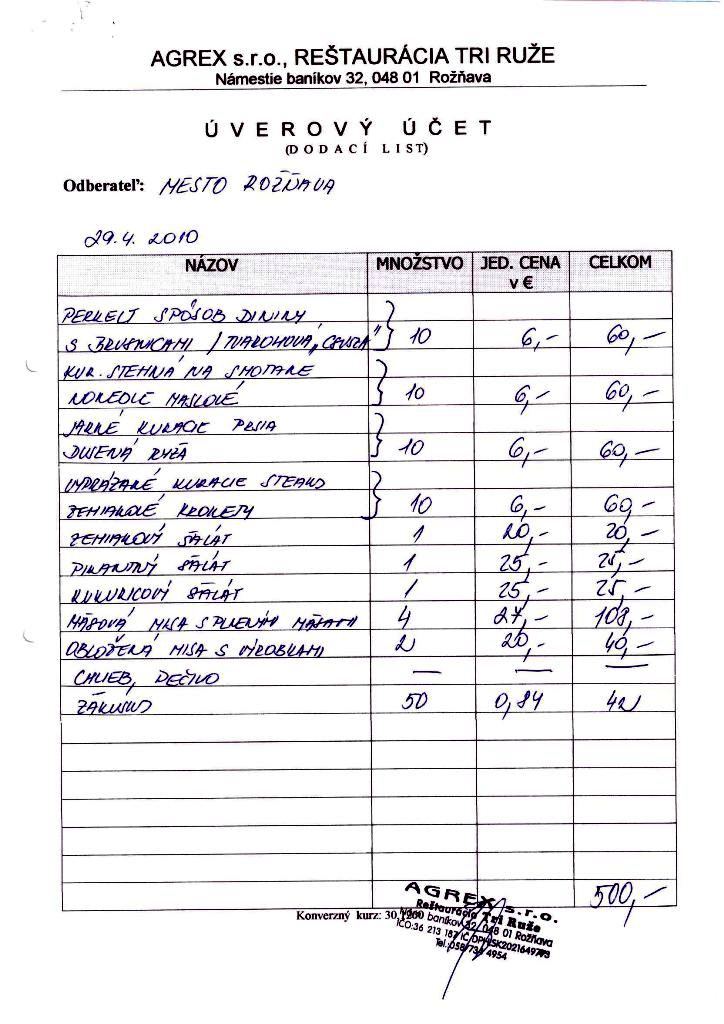 AGREX s.r.o., REŠTAURÁCIA TRI RUŽE
Námestie baníkov 32, 048 01 Rožňava
ÚVEROVÝ ÚČET
(DODACÍ LIST)
Odberateľ: MESTO ROŽŇAVA
29.4. 2010
NÁZOV MNOŽSTVO JED. CENA v € CELKOM
PERKELT SPÔSOB DIVINY
S BRUSNICAMI / TVAROHOVÁ " 10 6,- 60,-
KUR. STEHNÁ NA SMOTANE
KNEDLE MASLOVÉ 10 6,- 60,-
JARNÉ KURACIE PRSIA
DUSENÁ RYŽA 10 6,- 60,-
VYPRÁŽANÉ KURACIE STEAKS
ZEMIAKOVÉ KROKETY 10 6,- 60,-
ZEMIAKOVÝ ŠALÁT 1 20,- 20,-
PIKANTNÝ ŠALÁT 1 25,- 25,-
KUKURICOVÝ ŠALÁT 1 25,- 25,-
MÄSOVÁ MISA S 4 27,- 108,-
OBLOŽENÁ MISA S VÝROBKAMI 2 20,- 40,-
CHLIEB, PEČIVO — — —
ZÁKUSKY 50 0,84 42
500,-
Konverzný kurz: 30,1260
AGREX s.r.o.
Reštaurácia Tri Ruže
Nám. baníkov 32, 048 01 Rožňava
IČO:36 213 187 IČ DPH:SK2021649773
Tel.:058/734 4954